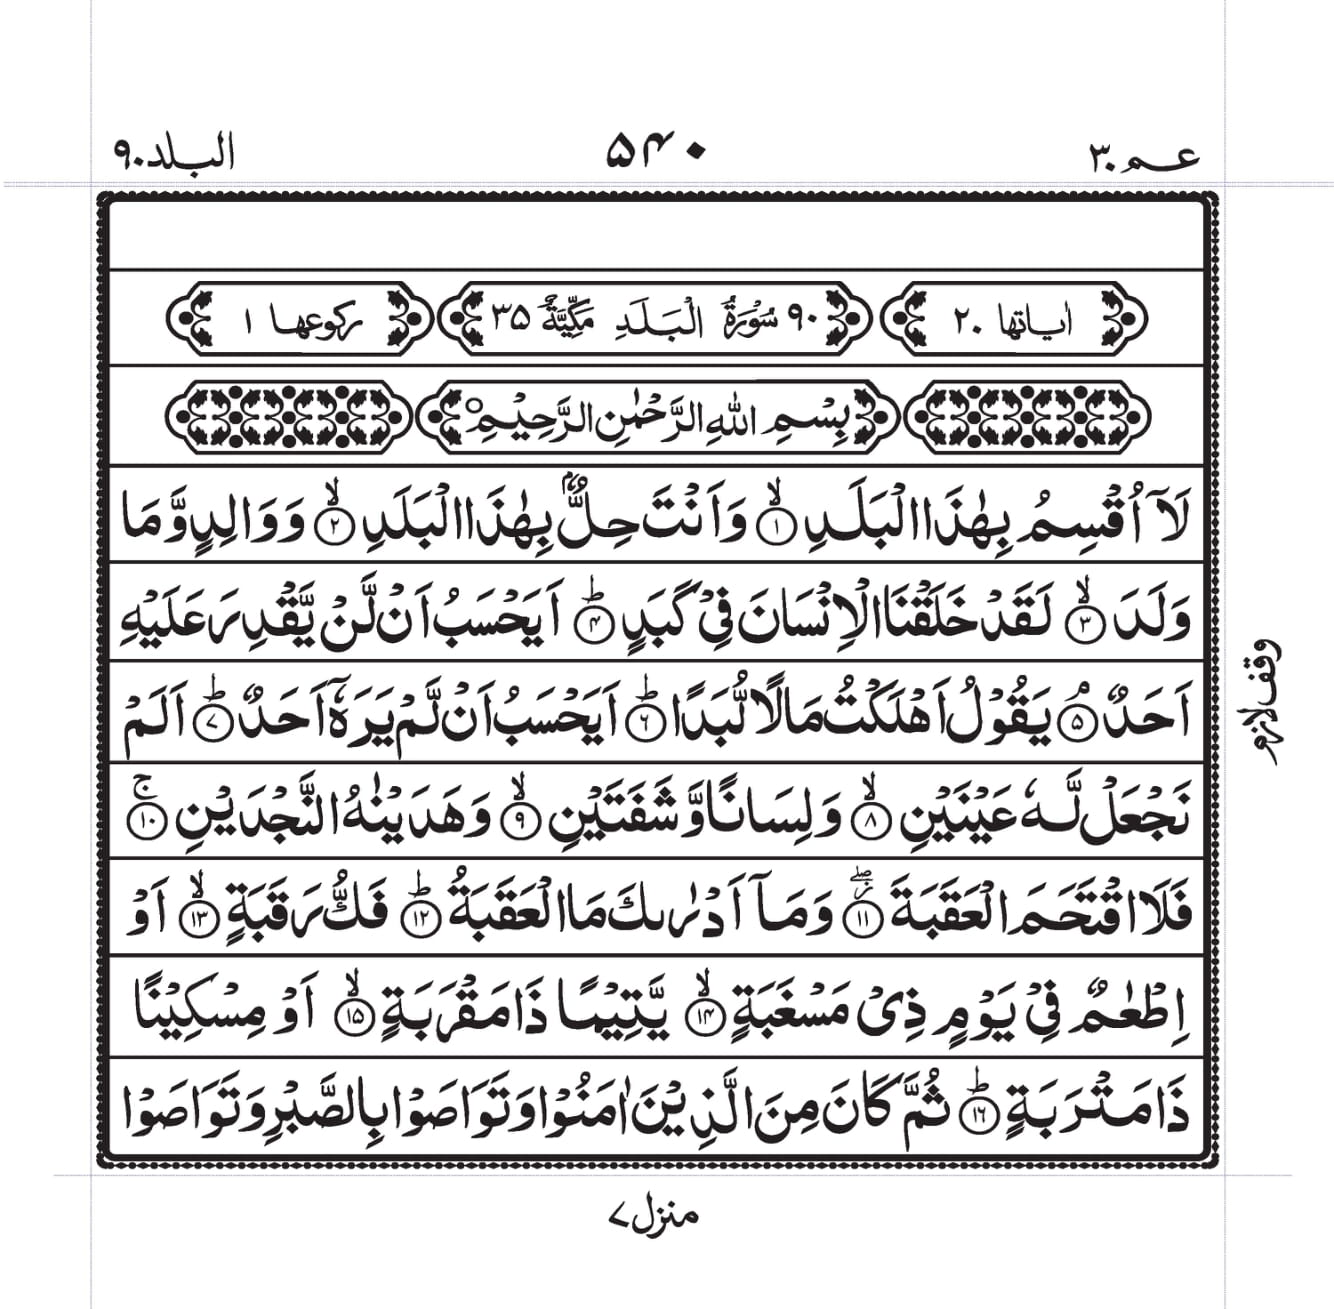 عـم ٣٠ ۵۴۰ البلد ٩٠
اٰیاتها ٢٠ ٩٠ سُوْرَةُ الْبَلَدِ مَكِّيَّةٌ ٣۵ رکوعها ١
بِسْمِ اللّٰهِ الرَّحْمٰنِ الرَّحِيْمِ
لَاۤ اُقْسِمُ بِهٰذَا الْبَلَدِۙ ﴿۱﴾ وَاَنْتَ حِلٌّۢ بِهٰذَا الْبَلَدِۙ ﴿۲﴾ وَوَالِدٍ وَّمَا
وَلَدَۙ ﴿۳﴾ لَقَدْ خَلَقْنَا الْاِنْسَانَ فِیْ كَبَدٍؕ ﴿۴﴾ اَیَحْسَبُ اَنْ لَّنْ یَّقْدِرَ عَلَیْهِ
اَحَدٌۘ ﴿۵﴾ یَقُوْلُ اَهْلَكْتُ مَالًا لُّبَدًاؕ ﴿۶﴾ اَیَحْسَبُ اَنْ لَّمْ یَرَهٗۤ اَحَدٌؕ ﴿۷﴾ اَلَمْ
وقف لازم
نَجْعَلْ لَّهٗ عَیْنَیْنِۙ ﴿۸﴾ وَلِسَانًا وَّشَفَتَیْنِۙ ﴿۹﴾ وَهَدَیْنٰهُ النَّجْدَیْنِۚ ﴿۱۰﴾
فَلَا اقْتَحَمَ الْعَقَبَةَ ﴿۱۱﴾ وَمَاۤ اَدْرٰىكَ مَا الْعَقَبَةُؕ ﴿۱۲﴾ فَكُّ رَقَبَةٍۙ ﴿۱۳﴾ اَوْ
اِطْعٰمٌ فِیْ یَوْمٍ ذِیْ مَسْغَبَةٍۙ ﴿۱۴﴾ یَّتِیْمًا ذَا مَقْرَبَةٍۙ ﴿۱۵﴾ اَوْ مِسْكِیْنًا
ذَا مَتْرَبَةٍؕ ﴿۱۶﴾ ثُمَّ كَانَ مِنَ الَّذِیْنَ اٰمَنُوْا وَتَوَاصَوْا بِالصَّبْرِ وَتَوَاصَوْا
منزل ۷